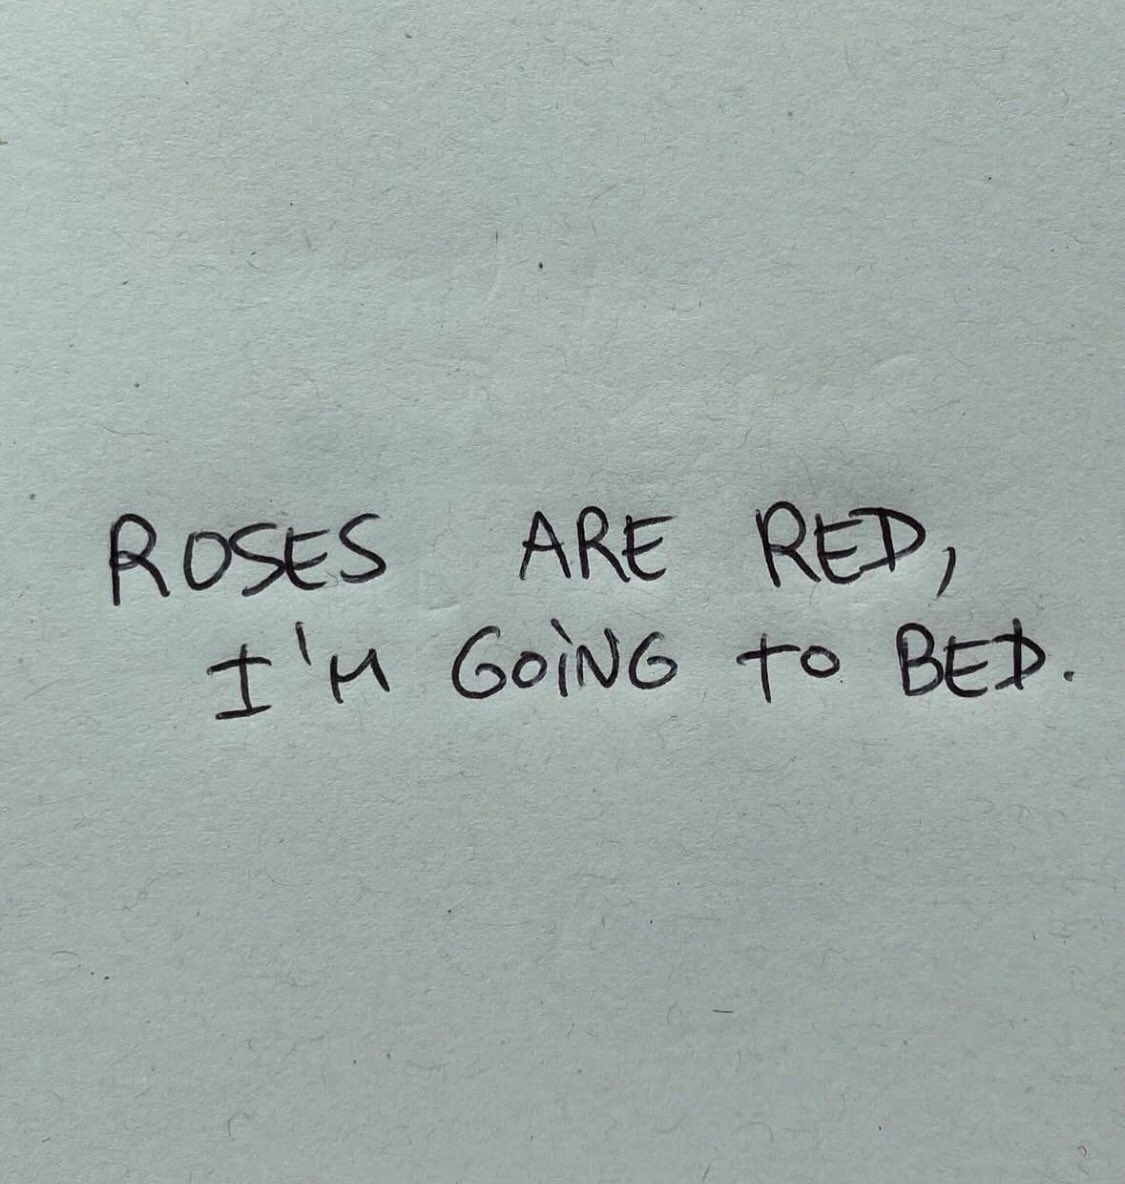 ROSES ARE RED,
I'M GOiNG to BED.